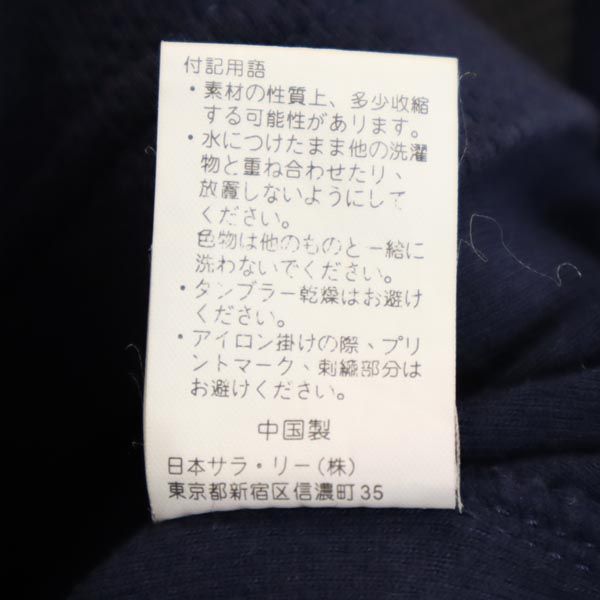 付記用語
・素材の性質上、多少収縮
する可能性があります。
・水につけたまま他の洗濯
物と重ね合わせたり、
放置しないようにして
ください。
色物は他のものと一緒に
洗わないでください。
・タンブラー乾燥はお避け
ください。
・アイロン掛けの際、プリ
ントマーク、刺繍部分は
お避けください。
中国製
日本サラ・リー(株)
東京都新宿区信濃町35